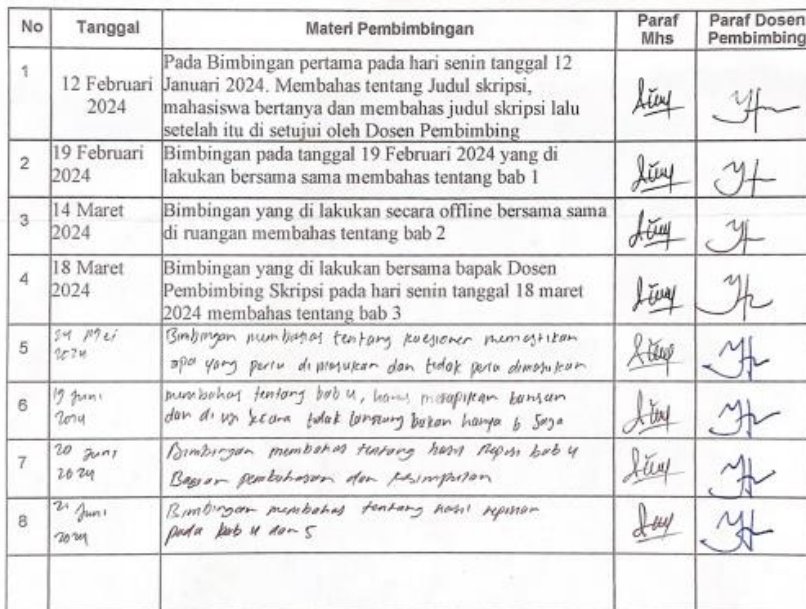 No Tanggal Materi Pembimbingan Paraf Mhs Paraf Dosen Pembimbing
1 12 Februari 2024
Pada Bimbingan pertama pada hari senin tanggal 12
Januari 2024. Membahas tentang Judul skripsi,
mahasiswa bertanya dan membahas judul skripsi lalu
setelah itu di setujui oleh Dosen Pembimbing
2 19 Februari 2024
Bimbingan pada tanggal 19 Februari 2024 yang di
lakukan bersama sama membahas tentang bab 1
3 14 Maret 2024
Bimbingan yang di lakukan secara offline bersama sama
di ruangan membahas tentang bab 2
4 18 Maret 2024
Bimbingan yang di lakukan bersama bapak Dosen
Pembimbing Skripsi pada hari senin tanggal 18 maret
2024 membahas tentang bab 3
5 24 Mei 2024
Bimbingan membahas tentang kuesioner memastikan
apa yang perlu di masukan dan tidak perlu dimasukan
6 19 Juni 2024
membahas tentang bab 4, harus merapikan
dan di uji secara tidak langsung bukan hanya 6 saja
7 20 Juni 2024
Bimbingan membahas tentang hasil Repisi bab 4
Bagian pembahasan dan kesimpulan
8 21 Juni 2024
Bimbingan membahas tentang hasil repisian
pada bab 4 dan 5